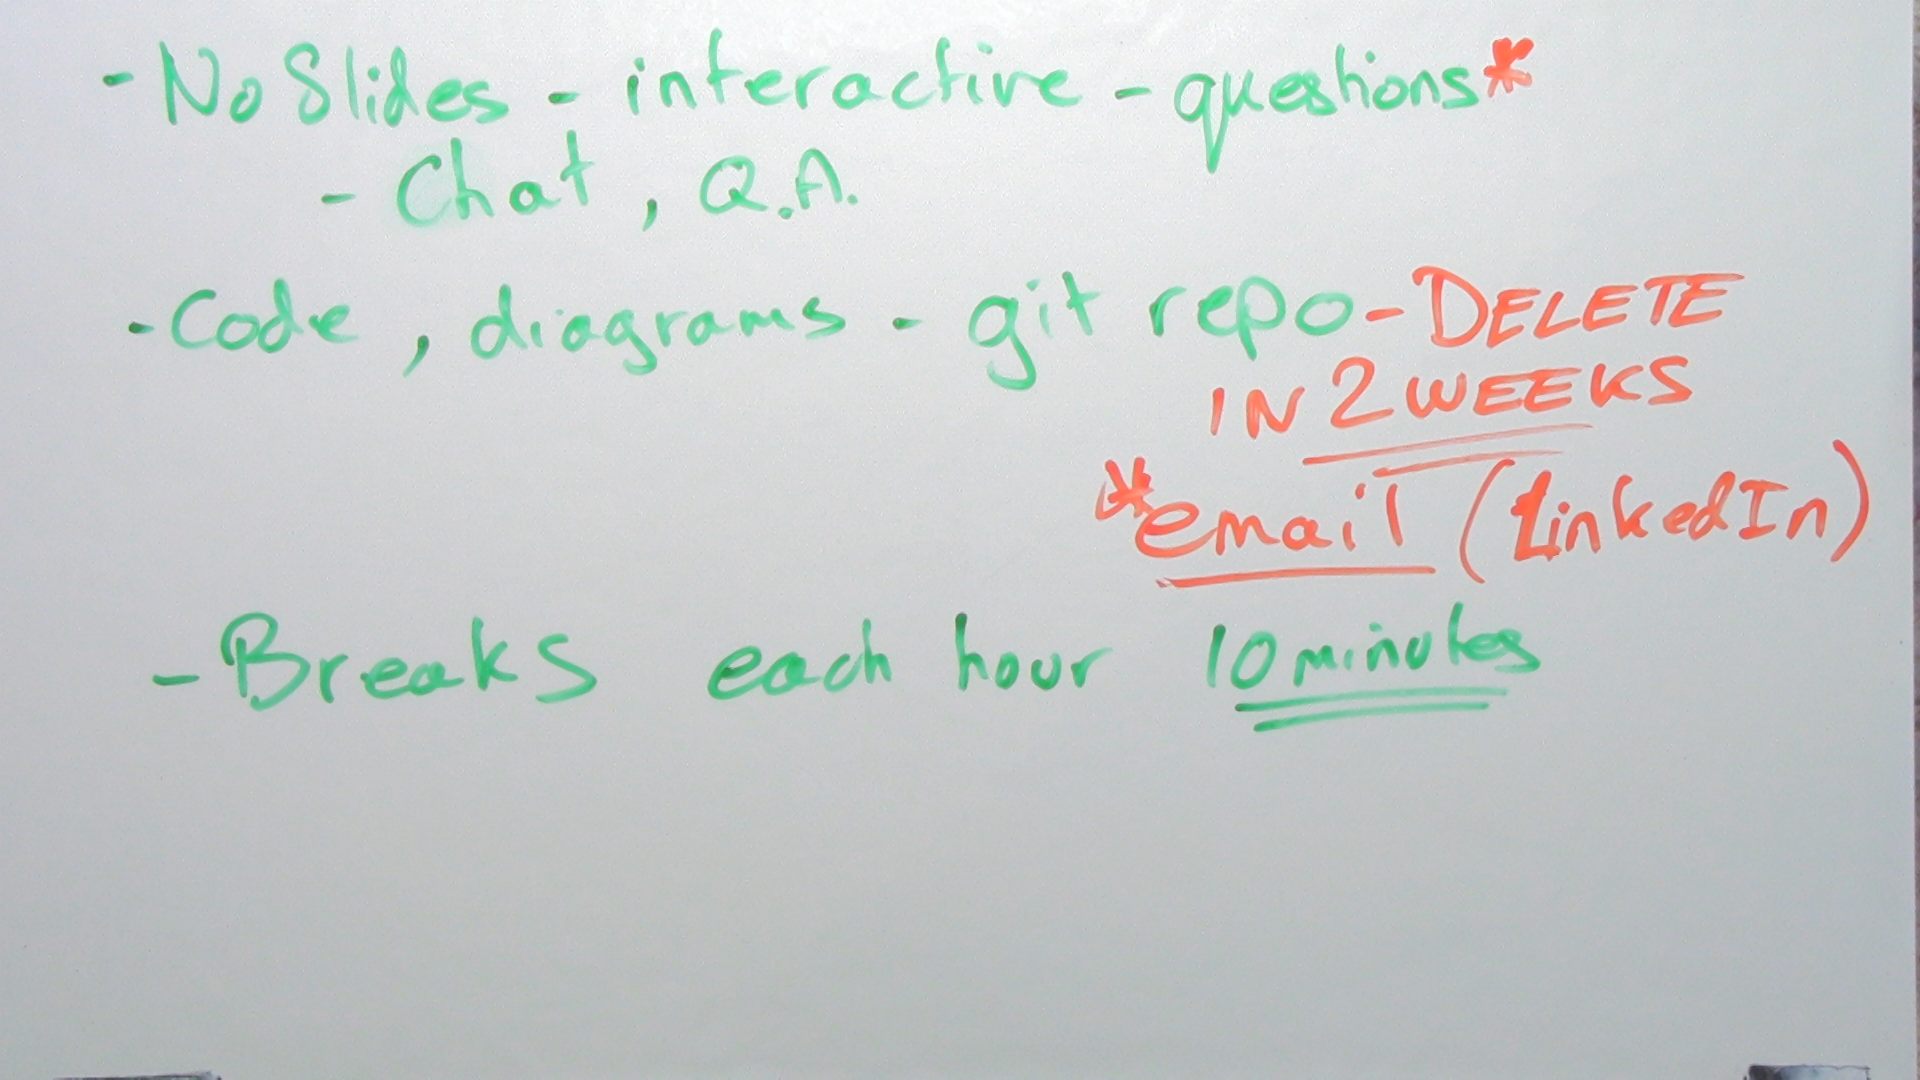 - No Slides - interactive - questions*
- Chat, Q.A.
- Code, diagrams - git repo - DELETE
IN 2 WEEKS
* email (LinkedIn)
- Breaks each hour 10 minutes